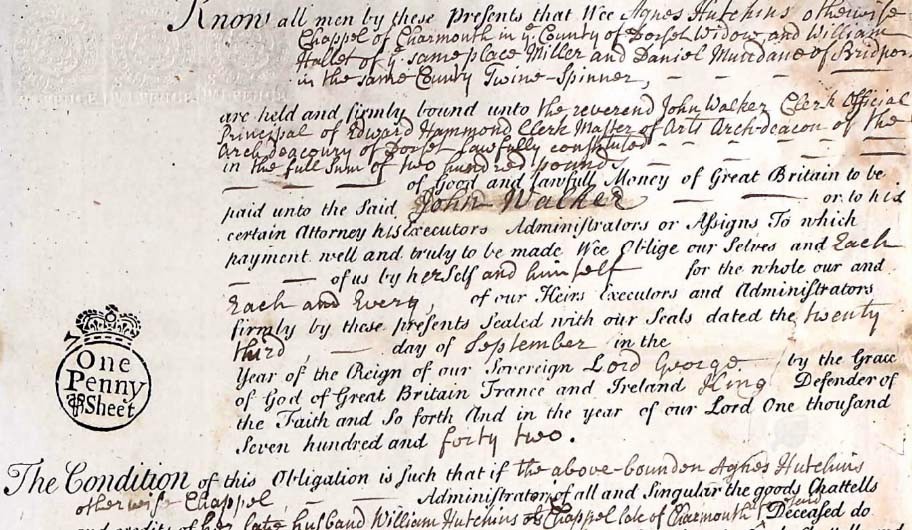 Know all men by these Presents that Wee Agnes Hutchins otherwise
Chappel of Charmouth in ye County of Dorset Widow and William
Hallet of ye same place Miller and Daniel Mundane of Bridport
in the same County Twine-Spinner,
are held and firmly bound unto the reverend John Walker Clerk Official
Principal of Edward Hammond Clerk Master of Arts Arch-deacon of the
Arch-deaconry of Dorset lawfully constituted
in the full sum of two hundred pounds
of Good and lawfull Money of Great Britain to be
paid unto the Said John Walker or to his
certain Attorney his Executors Administrators or Assigns To which
payment well and truly to be made Wee Oblige our Selves and Each
of us by herself and himself for the whole our and
Each and Every, of our Heirs Executors and Administrators
firmly by these presents Sealed with our Seals dated the twenty
third day of September in the
Year of the Reign of our Sovereign Lord George by the Grace
of God of Great Britain France and Ireland King Defender of
the Faith and So forth And in the year of our Lord One thousand
Seven hundred and forty two.
One
Penny
Sheet
The Condition of this Obligation is Such that if the above-bounden Agnes Hutchins
otherwise Chappel, Administrator of all and Singular the goods Chattells
her late husband William Hutchins Chappel late of Charmouth Deceased do